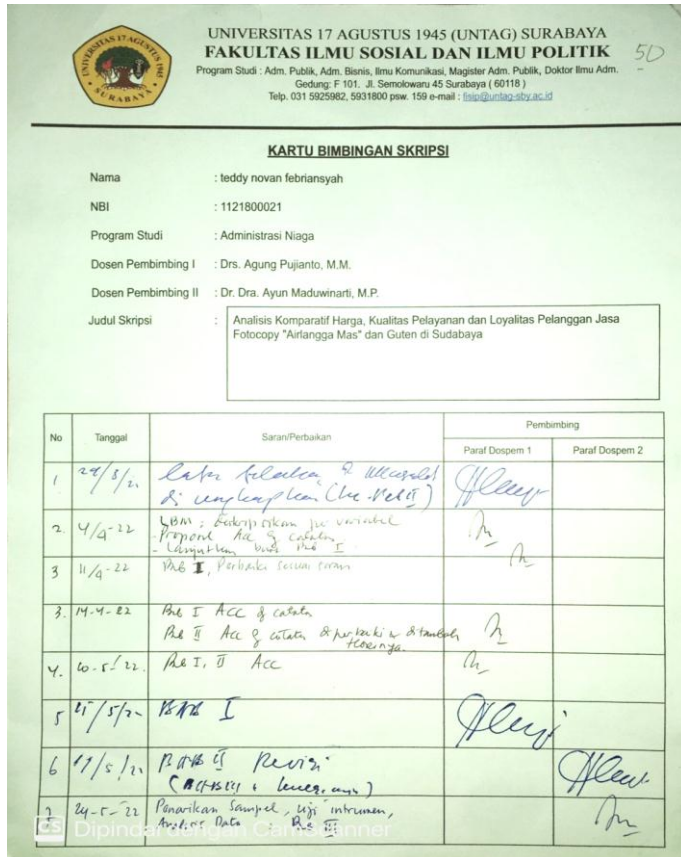 UNIVERSITAS 17 AGUSTUS 1945 (UNTAG) SURABAYA
FAKULTAS ILMU SOSIAL DAN ILMU POLITIK
50
Program Studi : Adm. Publik, Adm. Bisnis, Ilmu Komunikasi, Magister Adm. Publik, Doktor Ilmu Adm.
Gedung: F 101. Jl. Semolowaru 45 Surabaya ( 60118 )
Telp. 031 5925982, 5931800 psw. 159 e-mail : fisip@untag-sby.ac.id
UNIVERSITAS 17 AGUSTUS 1945
SURABAYA
KARTU BIMBINGAN SKRIPSI
Nama : teddy novan febriansyah
NBI : 1121800021
Program Studi : Administrasi Niaga
Dosen Pembimbing I : Drs. Agung Pujianto, M.M.
Dosen Pembimbing II : Dr. Dra. Ayun Maduwinarti, M.P.
Judul Skripsi : Analisis Komparatif Harga, Kualitas Pelayanan dan Loyalitas Pelanggan Jasa
Fotocopy "Airlangga Mas" dan Guten di Sudabaya
No Tanggal Saran/Perbaikan Pembimbing
Paraf Dospem 1 Paraf Dospem 2
1
2. 4/4-22 LBM : variabel
- Proposal Acc
- Lanjutkan Bab I
3 11/4-22 Bab I, Perbaiki sesuai saran
3. 14-4-22 Bab I Acc & catatan
Bab II Acc & catatan diperbaiki & ditambah
teorinya.
4. 20-5-'22. Bab I, II Acc
5 BAB I
6 BAB II Revisi
7 24-5-'22 Penarikan Sampel, Uji intrumen,
Analisis Data Bab III
CS Dipindai dengan CamScanner